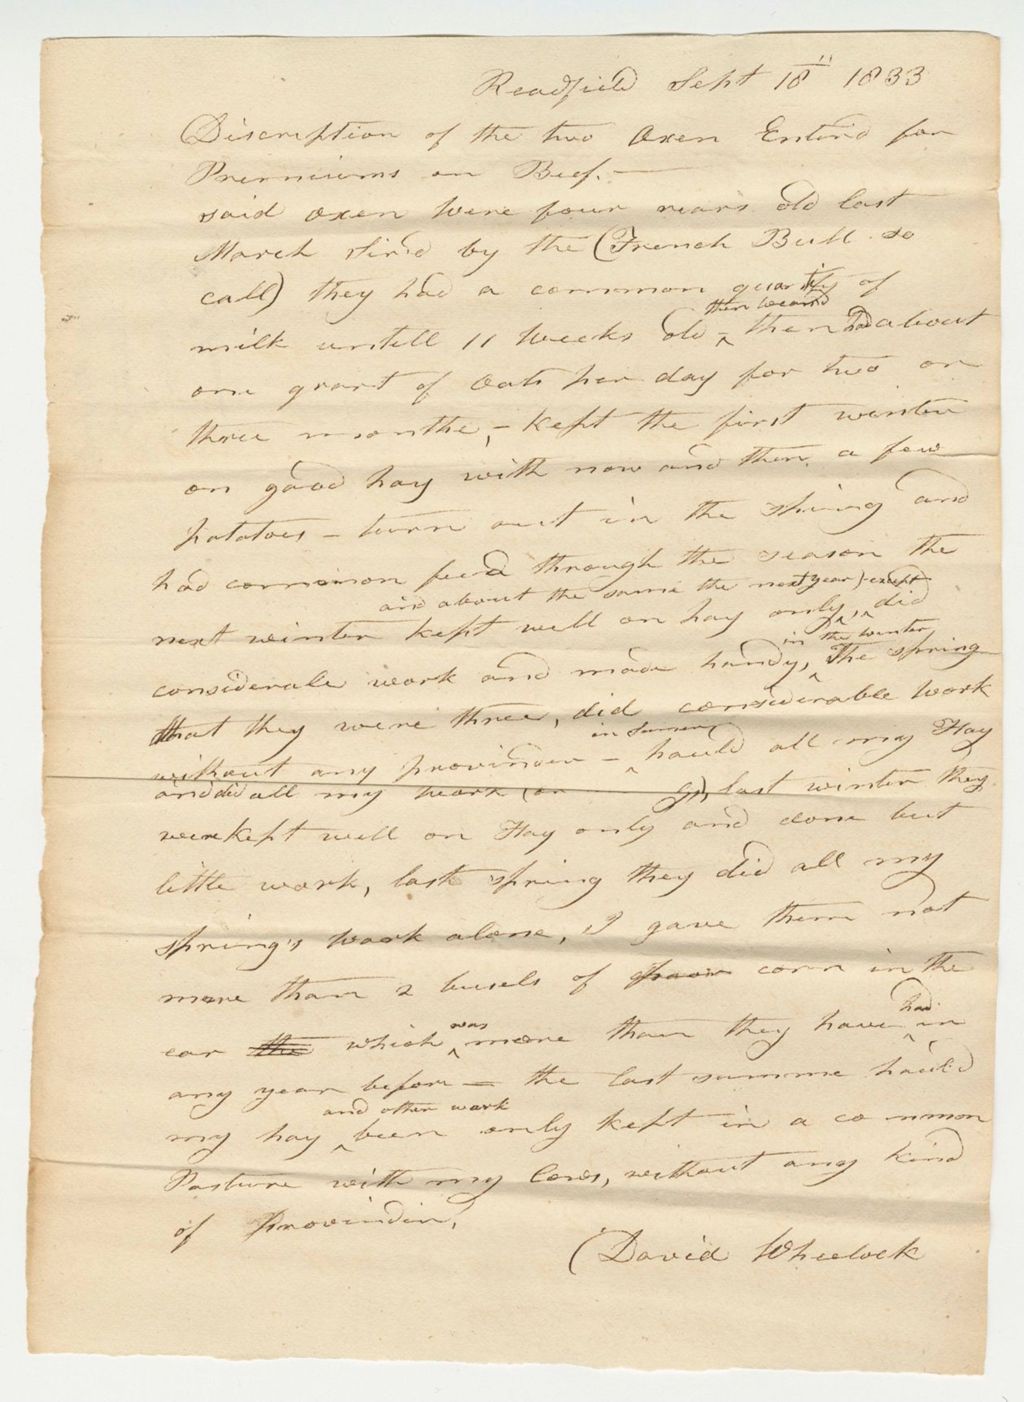 Readfield Sept 18" 1833
Discription of the two Oxen Enterd for
Premiums on Beef. —
said oxen were four years old last
March sir'd by the (French Bull so
call) they had a common quantity of
then weand
milk untill 11 weeks old - ^ then had about
one quart of Oats per day for two or
three months, - kept the first winter
on good hay with now and then a few
potatoes - turn out in the Spring and
had common feed through the season the
and about the same the next year) except
next winter kept well on hay only, ^ did
in the winter
considerale work and made handy, ^ The spring
that they were three, did considerable work
in Summer
without any provinder - ^ hauld all my Hay
and did all my work last winter they
were kept well on Hay only and done but
little work, last spring they did all my
spring's work alone, I gave them not
more than 2 busels of corn in the
was had
ear the which ^ more than they have ^ in
any year before — the last summe haul'd
and other work
my hay ^ been only kept in a common
Pasture with my Cows, without any kind
of Provindin,
David Wheelock